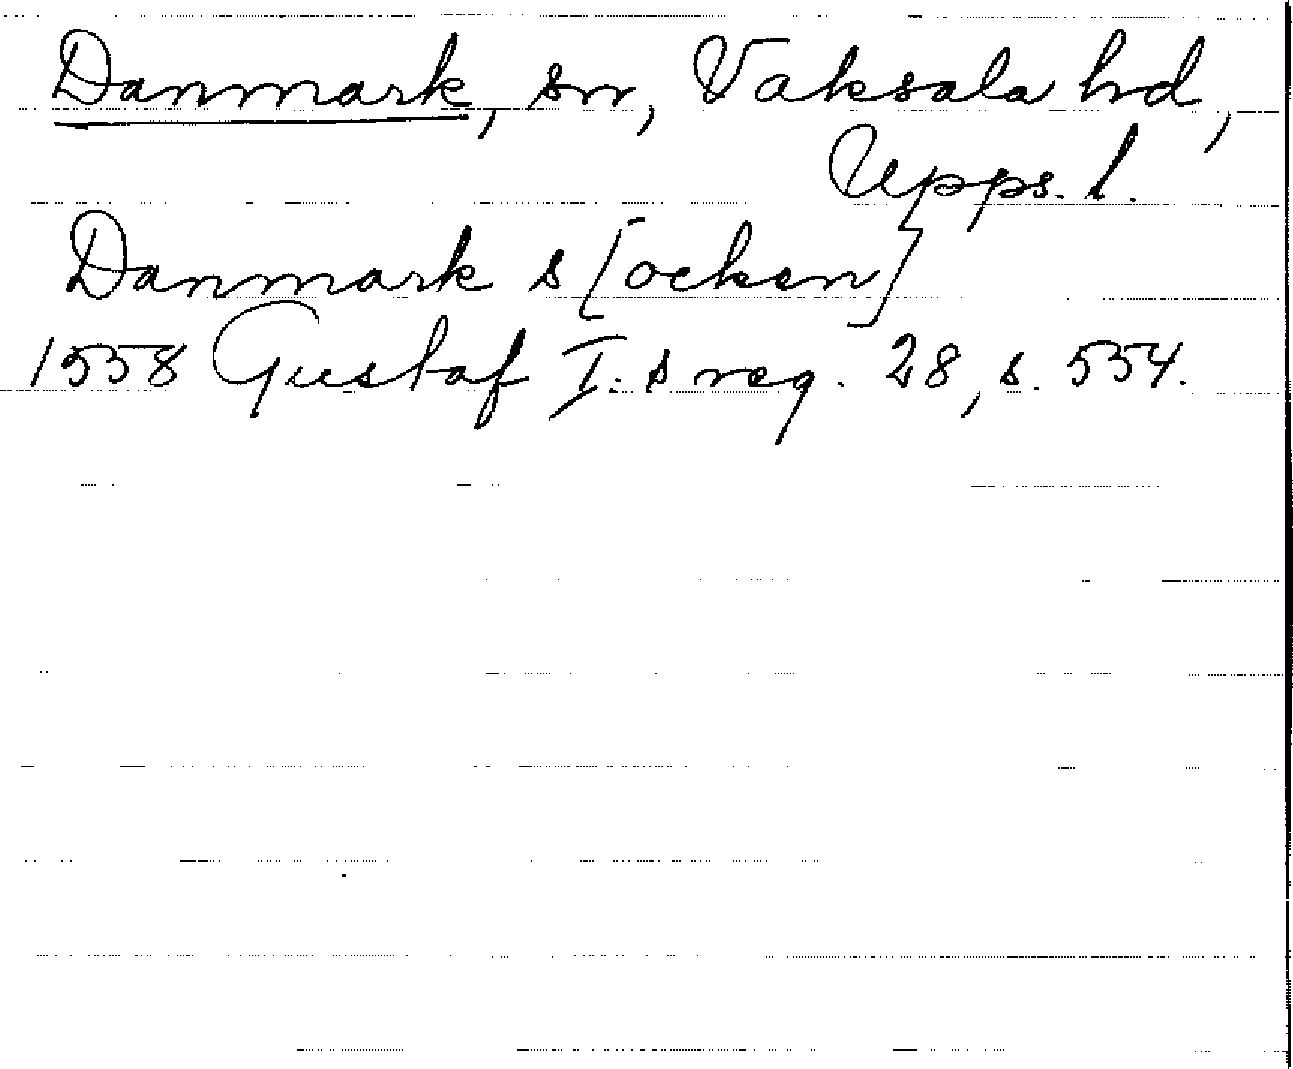 Danmark, sn, Vaksala hd,
Upps. l.
Danmark s[ocken]
1558 Gustaf I:s reg. 28, s. 554.